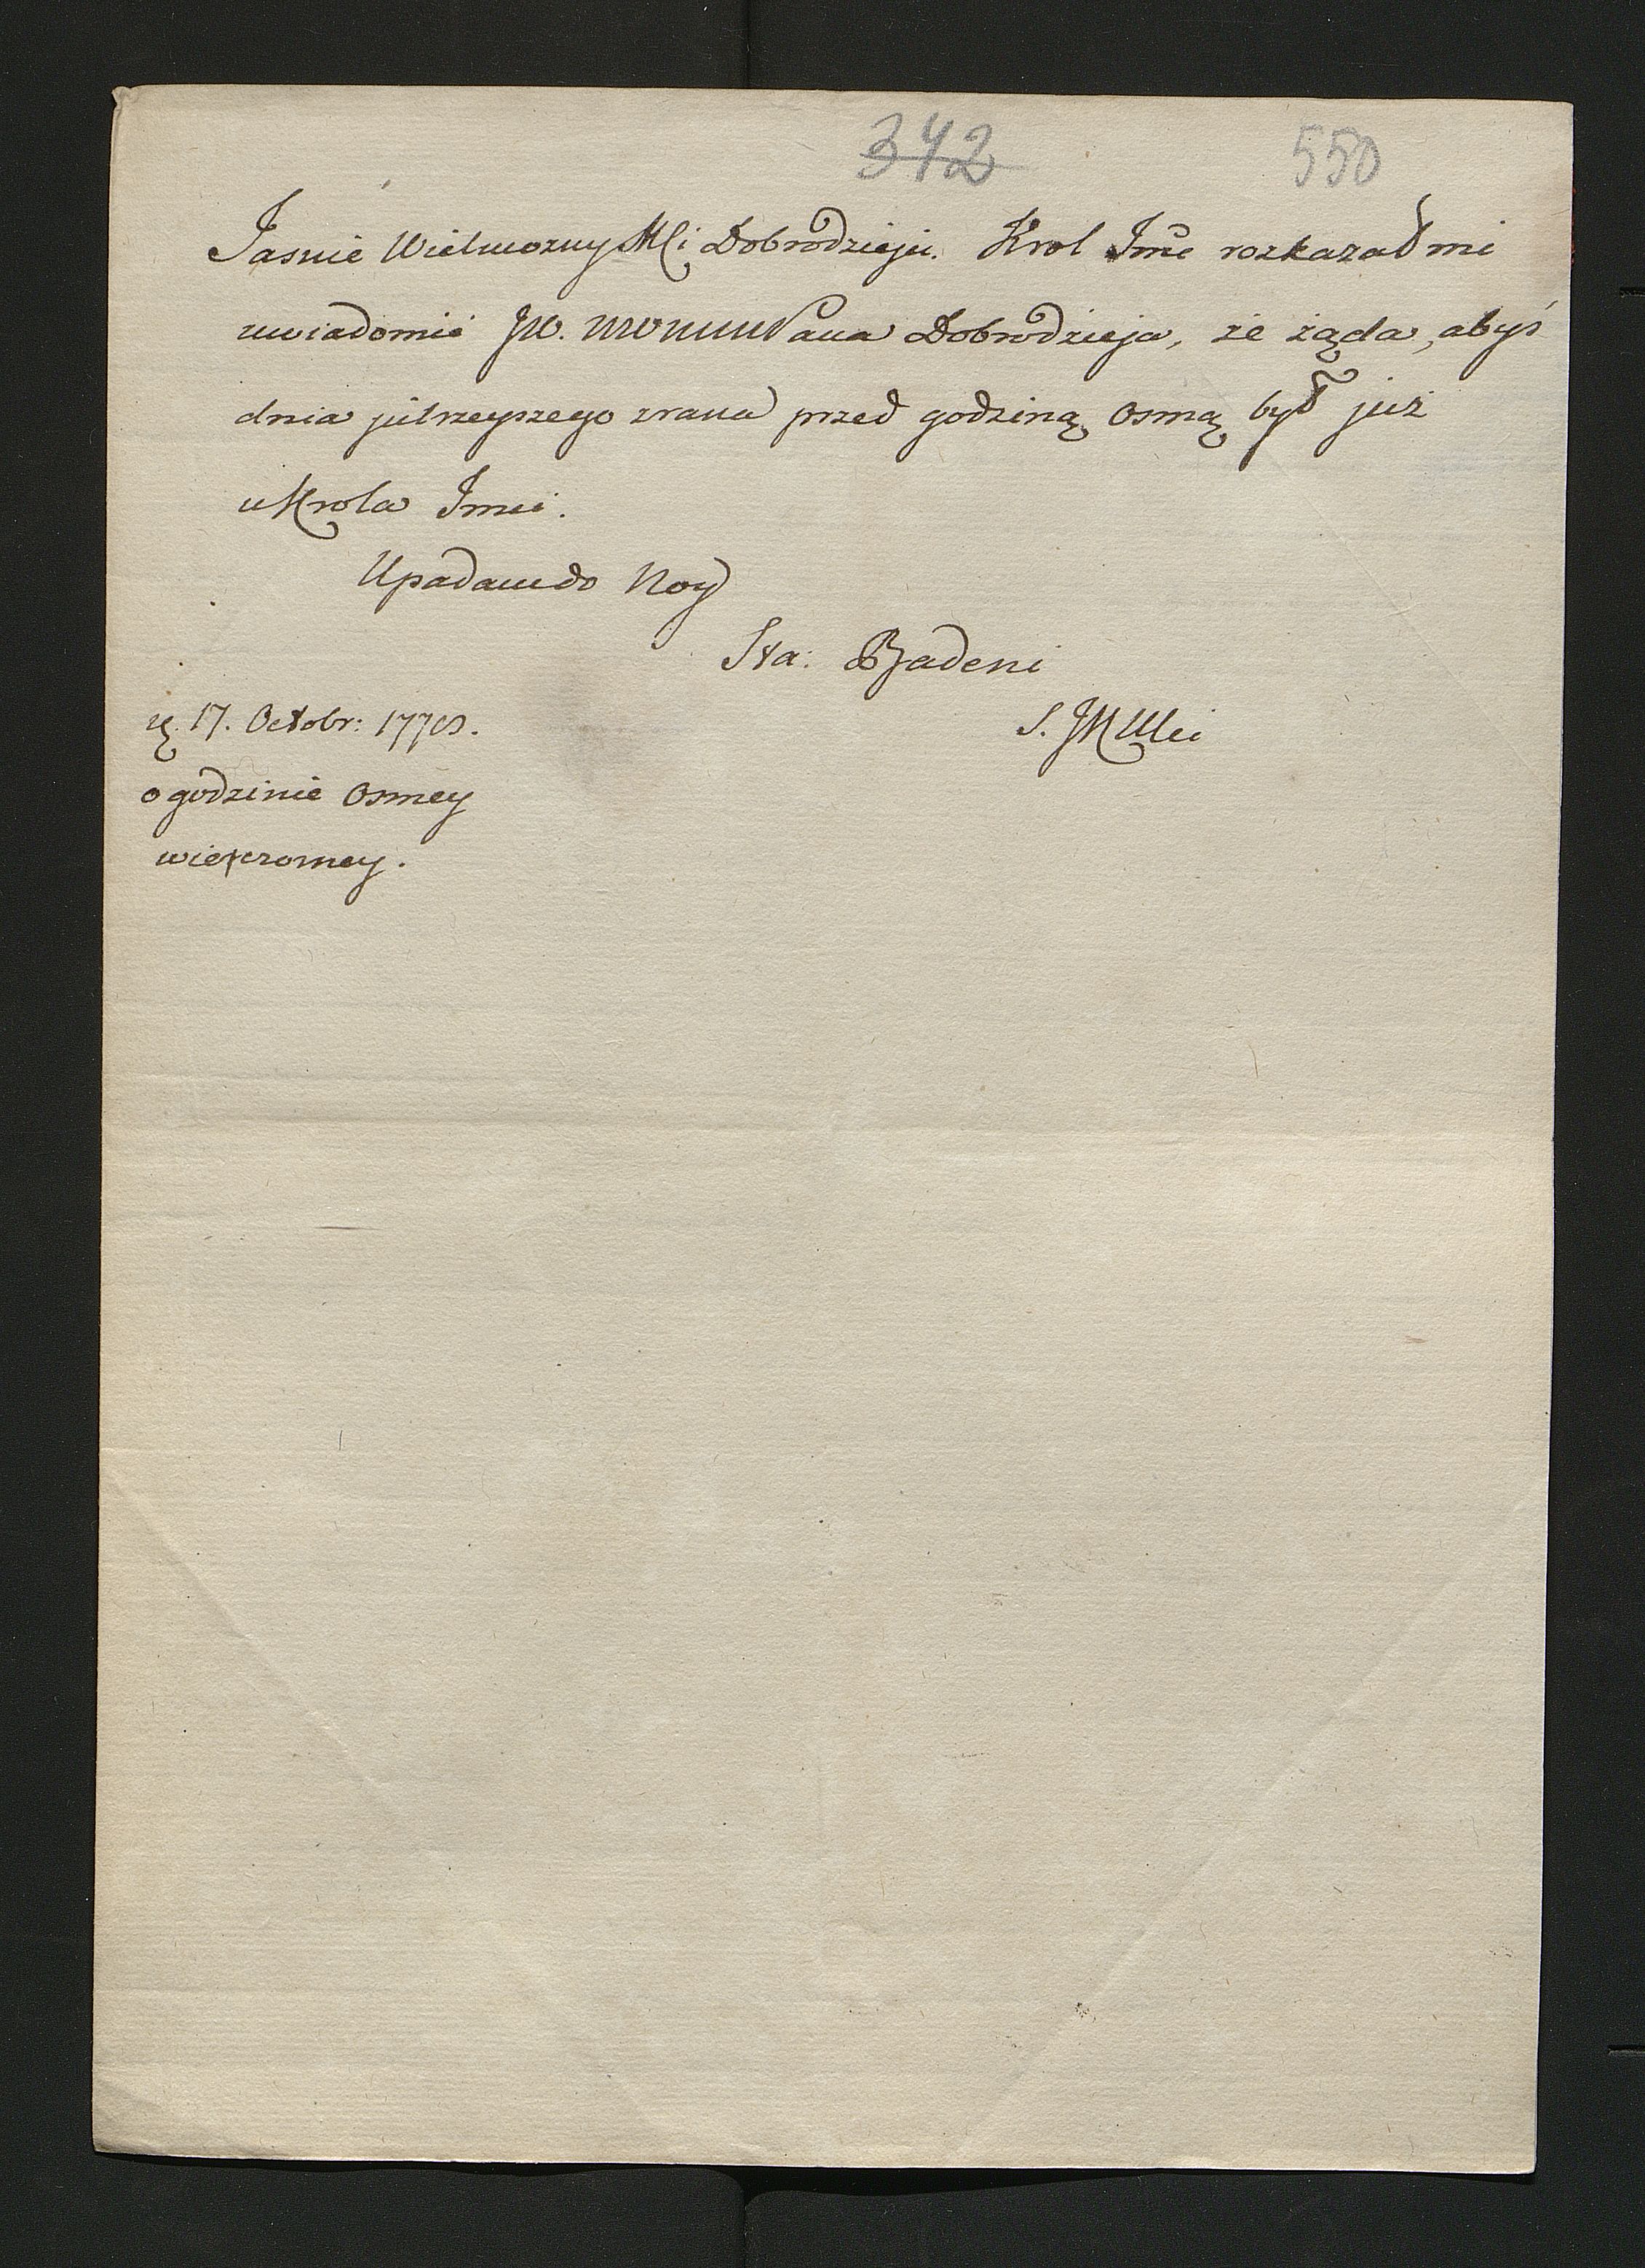 342 550
Jasnie Wielmozny Mci Dobrodzieju. Krol Jmć rozkazał mi
uwiadomić JW. WMM Pana Dobrodzieja, że żąda, abyś
dnia jutrzeyszego zrana przed godziną osmą był już
u Krola Jmci.
Upadam do Nog
Sta: Badeni
S. JKMci
17. Octobr:
o godzinie osmey
wieczorney.